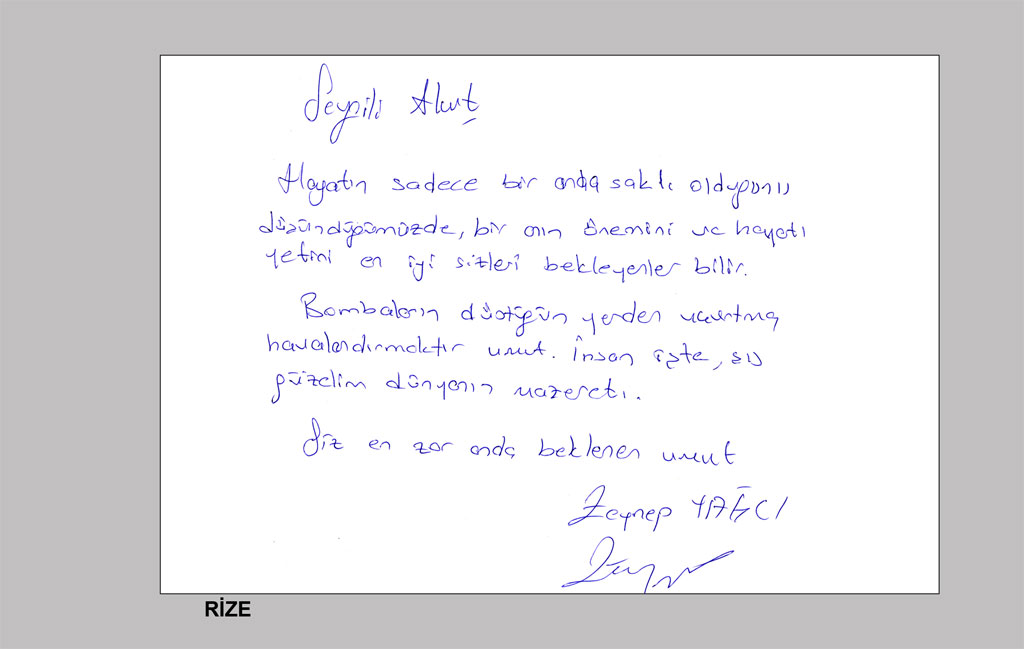 Sevgili Akut
Hayatın sadece bir anda saklı olduğunu
düşündüğümüzde, bir anın önemini ve hayati
yetini en iyi sizleri bekleyenler bilir.
Bombaların düştüğün yerden uçurtma
havalandırmaktır umut. İnsan işte, şu
güzelim dünyanın mazereti.
Siz en zor anda beklenen umut
Zeynep YAĞCI
RİZE